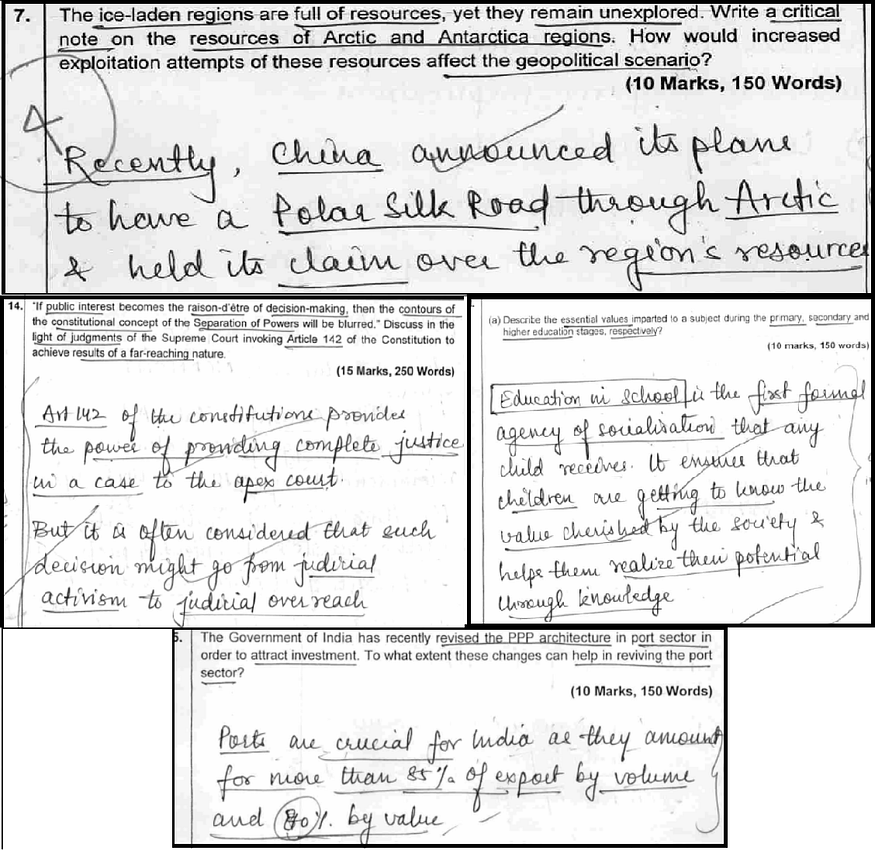 7. The ice-laden regions are full of resources, yet they remain unexplored. Write a critical
note on the resources of Arctic and Antarctica regions. How would increased
exploitation attempts of these resources affect the geopolitical scenario?
(10 Marks, 150 Words)
4
Recently, China announced its plans
to have a Polar Silk Road through Arctic
& held its claim over the region's resources
14. "If public interest becomes the raison-d'être of decision-making, then the contours of
the constitutional concept of the Separation of Powers will be blurred." Discuss in the
light of judgments of the Supreme Court invoking Article 142 of the Constitution to
achieve results of a far-reaching nature.
(15 Marks, 250 Words)
Art 142 of the constitutions provides
the power of providing complete justice
in a case to the apex court.
But it is often considered that such
decision might go from judicial
activism to judicial overreach
(a) Describe the essential values imparted to a subject during the primary, secondary and
higher education stages, respectively?
(10 marks, 150 words)
Education in school is the first formal
agency of socialisation that any
child receives. It ensures that
children are getting to know the
value cherished by the society &
helps them realize their potential
through knowledge
5. The Government of India has recently revised the PPP architecture in port sector in
order to attract investment. To what extent these changes can help in reviving the port
sector?
(10 Marks, 150 Words)
Ports are crucial for India as they amount
for more than 85% of export by volume
and 80%. by value